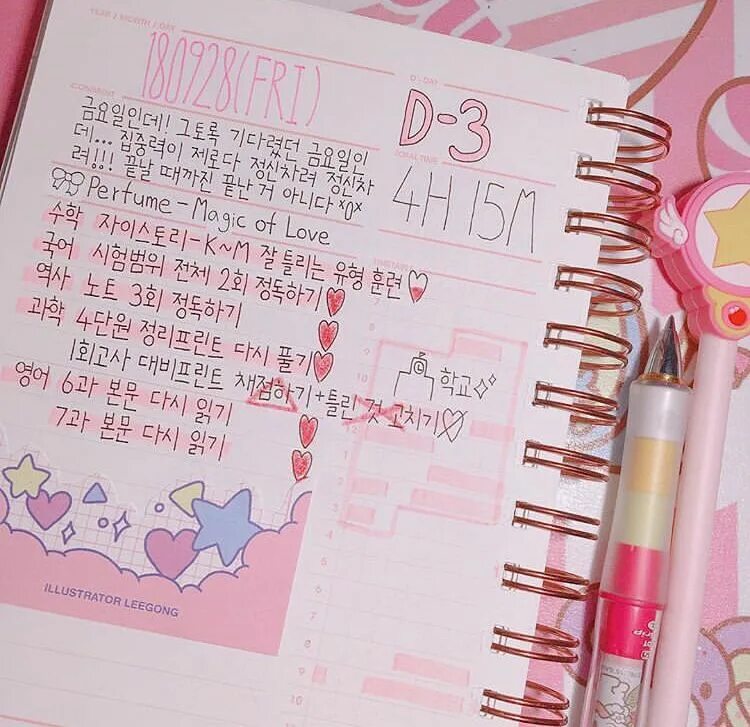 YEAR / MONTH / DAY
180928(FRI)
D-DAY
D-3
COMMENT
금요일인데! 그토록 기다렸던 금요일인
데... 집중력이 제로다 정신차려 정신차
려!!! 끝날 때까진 끝난 거 아니다 *0*
TOTAL TIME
4H 15M
Perfume-Magic of Love
TIMETABLE
수학 자이스토리-K~M 잘 틀리는 유형 훈련
국어 시험범위 전체 2회 정독하기
역사 노트 3회 정독하기
과학 4단원 정리프린트 다시 풀기
1회고사 대비프린트 채점하기+틀린 것 고치기
학교
영어 6과 본문 다시 읽기
7과 본문 다시 읽기
ILLUSTRATOR LEEGONG
7
8
9
10
1
2
3
4
5
8
9
10